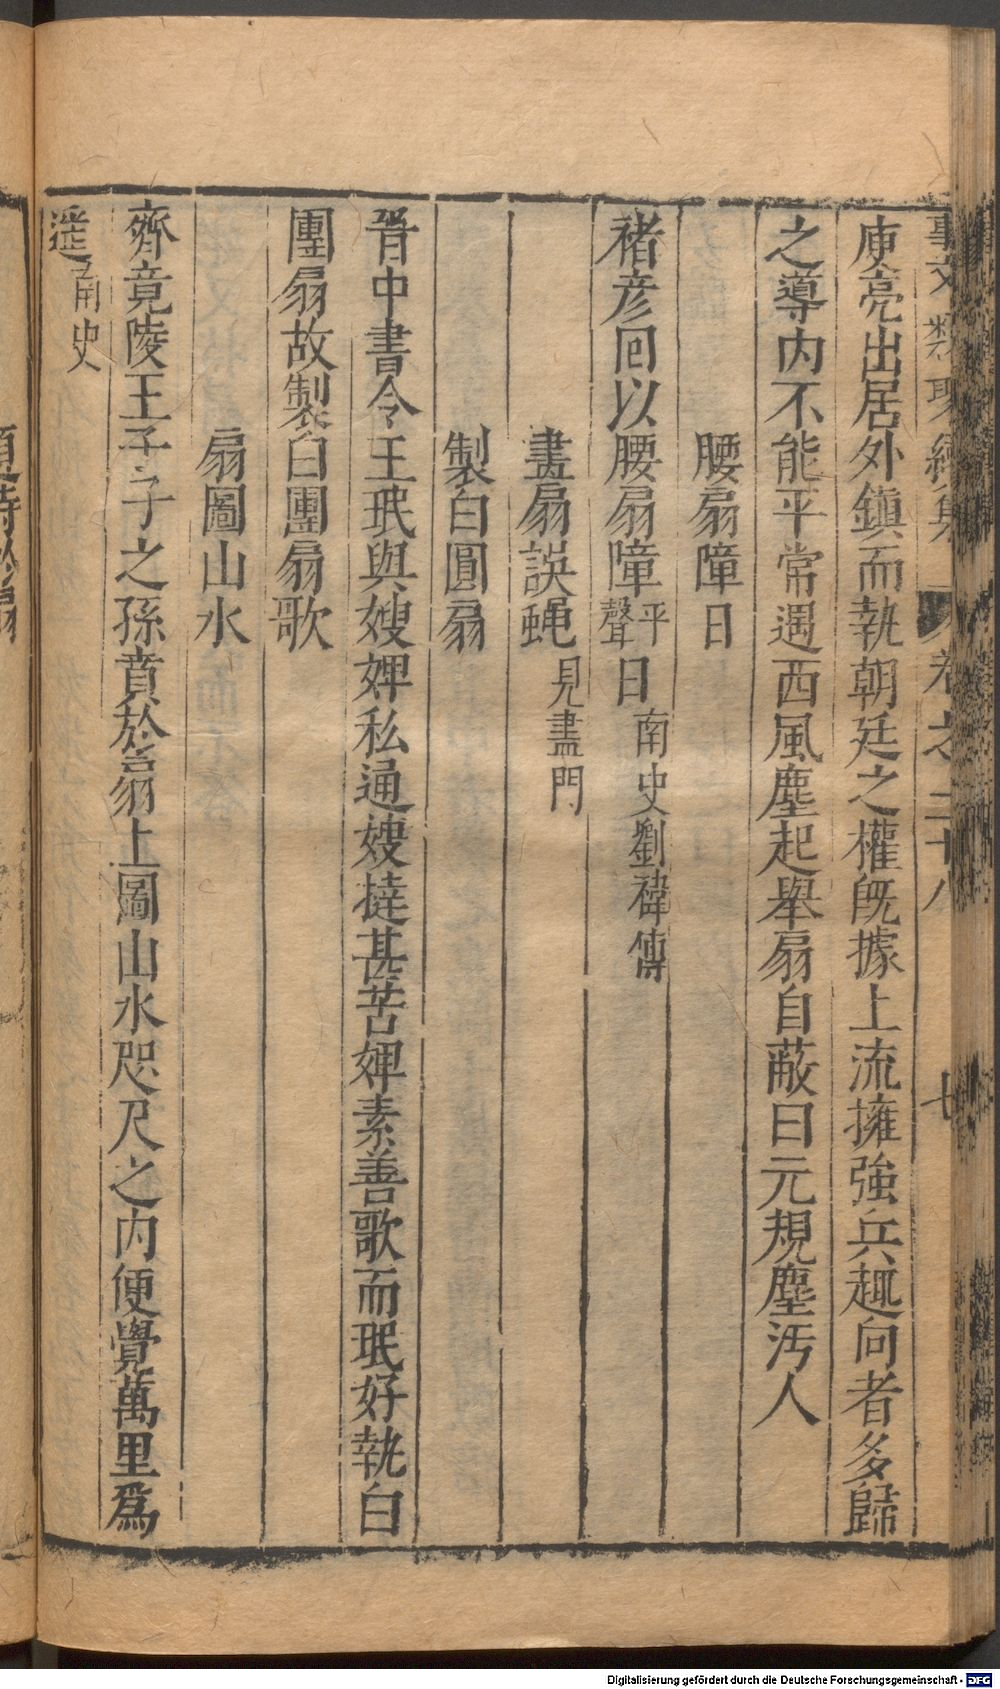 事文類聚續集 卷之二十八 七
庾亮出居外鎮而執朝廷之權旣據上流擁強兵趣向者多歸
之導内不能平常遇西風塵起舉扇自蔽曰元規塵汚人
腰扇障日
褚彦回以腰扇障平聲日南史劉禕傳
畫扇誤蝿見畫門
製白圓扇
晉中書令王珉與嫂婢私通嫂撻甚苦婢素善歌而珉好執白
團扇故製白團扇歌
扇圖山水
齊竟陵王子子之孫賁於扇上圖山水咫尺之内便覺萬里爲
遥南史
Digitalisierung gefördert durch die Deutsche Forschungsgemeinschaft - DFG